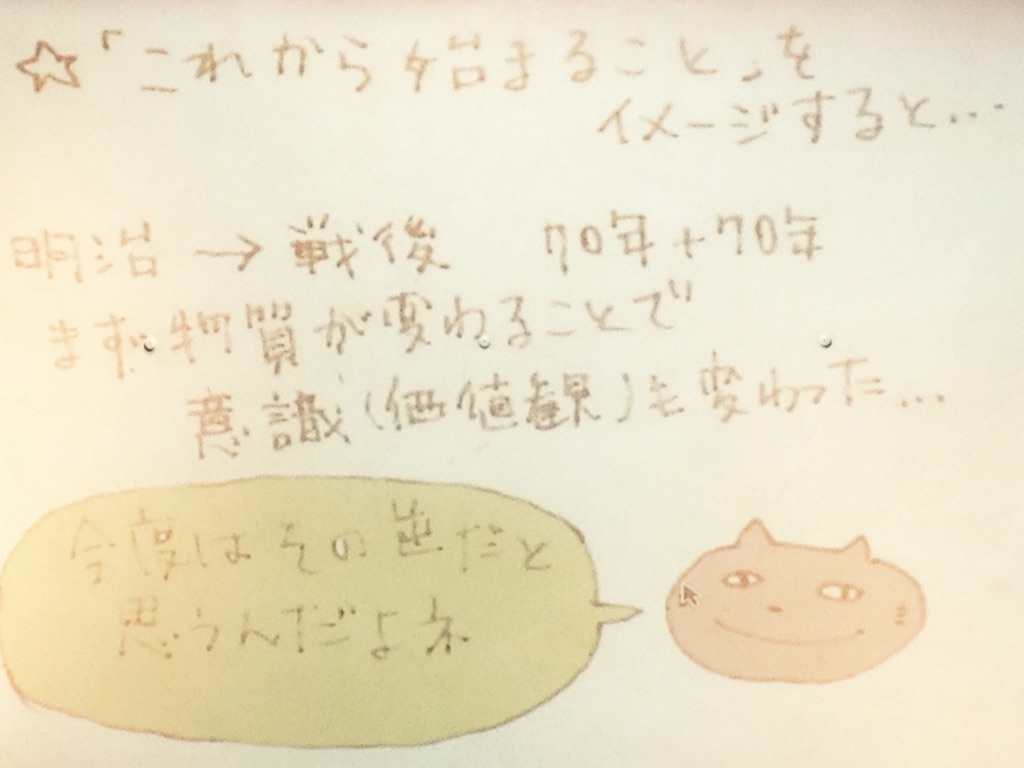 ☆「これから始まること」を
イメージすると…
明治→戦後 70年+70年
まず物質が変わることで
意識(価値観)も変わった…
今度はその逆だと
思うんだよネ